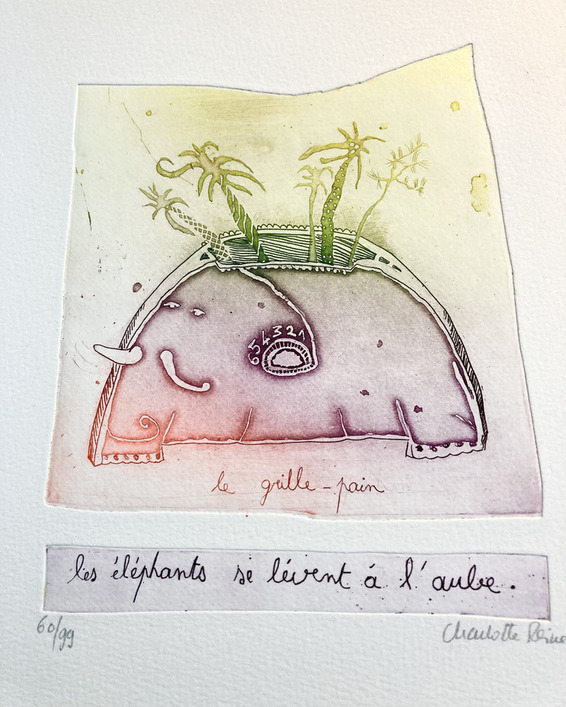 654321
le grille-pain
les éléphants se lèvent à l'aube.
60/99
Charlotte